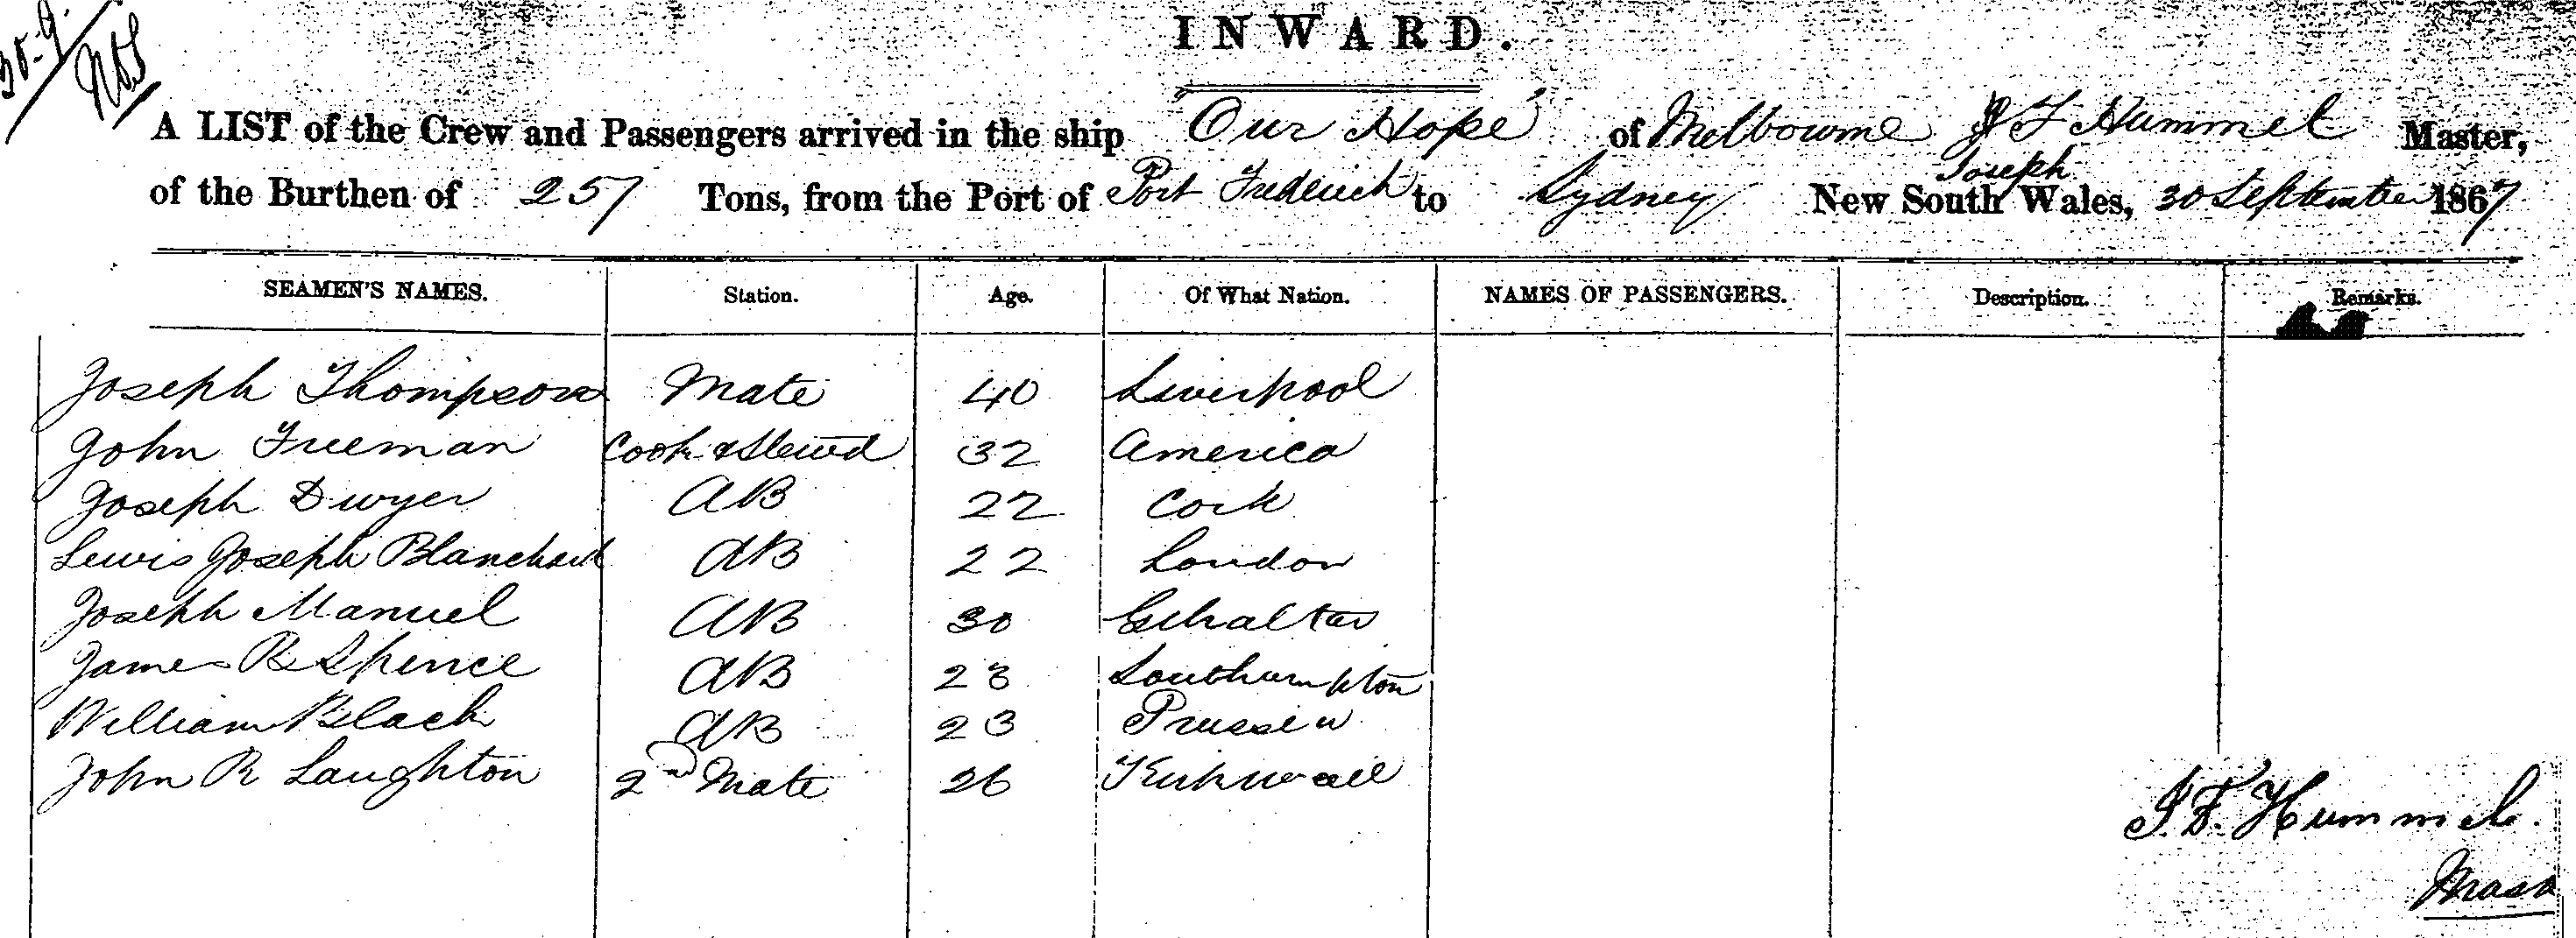 30-9
INWARD.
A LIST of the Crew and Passengers arrived in the ship "Our Hope" of Melbourne J F Hummel Master,
Joseph
of the Burthen of 257 Tons, from the Port of Port Frederick to Sydney New South Wales, 30 September 1867
SEAMEN'S NAMES. Station. Age. Of What Nation. NAMES OF PASSENGERS. Description. Remarks.
Joseph Thompson Mate 40 Liverpool
John Freeman Cook & Stewd 32 America
Joseph Dwyer AB 22 Cork
Lewis Joseph Blanchard AB 22 London
Joseph Manuel AB 30 Gibraltar
James R Spence AB 23 Southampton
William Black AB 23 Prussia
John R Laughton 2nd Mate 26 Kirkwall
J. F. Hummel.